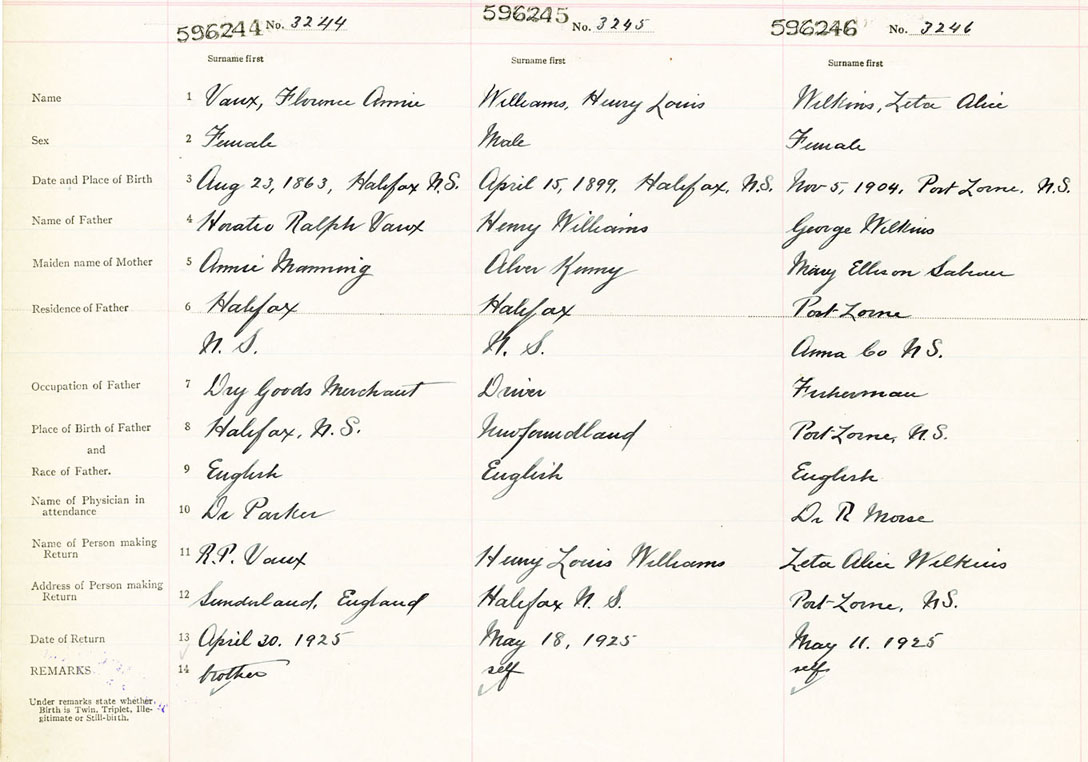 596244 No. 3244 596245 No. 3245 596246 No. 3246
Surname first Surname first Surname first
Name 1 Vaux, Florence Annie Williams, Henry Louis Wilkins, Zeta Alice
Sex 2 Female Male Female
Date and Place of Birth 3 Aug 23, 1863, Halifax N.S. April 15, 1899, Halifax, N.S. Nov 5, 1904, Port Lorne, N.S.
Name of Father 4 Horatio Ralph Vaux Henry Williams George Wilkins
Maiden name of Mother 5 Annie Manning Kenny Mary Ellison
Residence of Father 6 Halifax Halifax Port Lorne
N. S. N. S. Anna Co N.S.
Occupation of Father 7 Dry Goods Merchant Driver Fisherman
Place of Birth of Father 8 Halifax, N.S. Newfoundland Port Lorne, N.S.
and
Race of Father. 9 English English English
Name of Physician in
attendance 10 Dr Parker Dr R Morse
Name of Person making
Return 11 R.P. Vaux Henry Louis Williams Zeta Alice Wilkins
Address of Person making
Return 12 Sunderland, England Halifax N. S. Port Lorne, N.S.
Date of Return 13 April 20. 1925 May 18, 1925 May 11. 1925
REMARKS 14 brother self self
Under remarks state whether
Birth is Twin, Triplet, Ille-
gitimate or Still-birth.